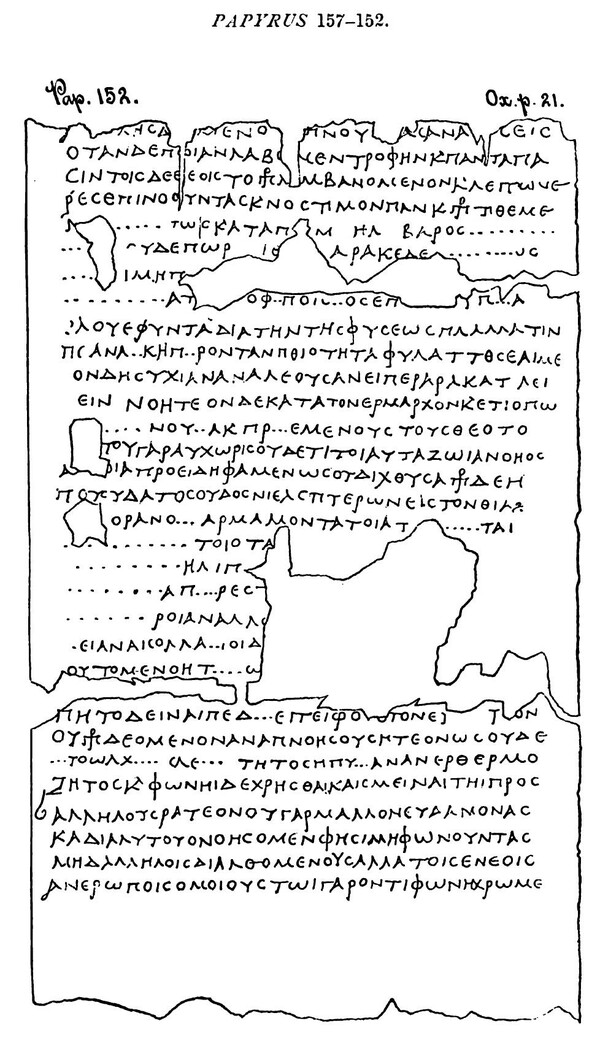 PAPYRUS 157–152.
Pap. 152.
Ox. p. 21.
ΜΕΝΟ ΗΝΟΥ ΑϹΑΝΑ ϹΕΙϹ
ΟΤΑΝΔΕΠ ΔΙΑΝΛΑΒ ΕΝΤΡΟΦΗΝΚΠΑΝΤΑΠΑ
ϹΙΝΤΟΙϹΔΕ ΕΟΙϹΤΟ ΜΒΑΝΟΜΕΝΟΝΚΛΕΠΩΝΕ
ΡΕϹΕΠΙΝΟΟΥΝΤΑϹΚΝΟϹΤΙΜΟΝΠΑΝΚ ΤΙΘΕΜΕ
..... ΤΩ ΕΚΑΤΑΠ Μ ΗΛ ΒΑΡΟϹ.........
... ΥΔΕΠΩΡ ΙϹ ΑΡΑΚΕΔΕ......ΥϹ
.... ΙΜΗΠ
........ΑΤ ΟΦ..ΠΟΙ...ΟϹΕΠ ΥΠ...Α
ΛΟΥΕΦΥΝΤΑΔΙΑΤΗΝΤΗϹΦΥϹΕΩϹΠΑΛΛΑΤΙΝ
ΠϹΑΝΑ..ΚΗΠ..ΡΟΝΤΑΝΠΘΙΟΤΗΤΑΦΥΛΑΤΤΘϹΕΑΙΜΕ
ΟΝΔΗϹΥΧΙΑΝΑΝΑΛΕΟΥϹΑΝΕΙΠΕΡΑΡΑΚΑΤ ΛΕΙ
ΕΙΝ ΝΟΗΤΕΟΝΔΕΚΑΤΑΤΟΝΕΡΜΑΡΧΟΝΚΕΤΙΟΠΩ
.... ΝΟΥ..ΑΚΠΡ...ΕΜΕΝΟΥϹΤΟΥϹΘΕΟΤΟ
ΤΟΥΓΑΡΑΥΧΩΡΙϹΟΥΔΕΤΙΤΟΙΑΥΤΑΖΩΙΑΝΟΗϹ
ΔΙΑΠΡΟΕΙΔΗΦΑΜΕΝΩϹΟΥΔΙΧΘΥϹΑ ΔΕΗ
ΠΟϹΥΔΑΤΟϹΟΥΔΟϹΝΙΕΑϹΠΤΕΡΩΝΕΙϹΤΟΝΘΙΑ
ΟΡΑΝΟ...ΑΡΜΑΜΟΝΤΑΤΟΙΑΤ ......ΤΑΙ
......... ΤΟΙΟΤΑ
........ΗΛΙΠ
........ΑΠ...ΡΕϹ
......ΡΟΙΑΝΑΛΛ
.ΕΙΑΝΑΙϹΟΛΛΑ..ΙΟΙΔ
ΟΥΤΟΜΕΝΟΗΤ....Ω
ΠΗΤΟΔΕΙΝΑΙΠΕΔ...ΕΠΕΙΦΟΥΤΟΝΕ ΤΟΝ
ΟΥ ΔΕΟΜΕΝΟΝΑΝΑΠΝΟΗϹΟΥϹΗΤΕΟΝΩϹΟΥΔΕ
...ΤΟΩΛΧ.... ϹΛΕ... ΤΗΤΟϹΗΠΥ...ΑΝΑΝΕΡΘΕΡΜΟ
ΖΗΤΟϹΚΦΩΝΗΙΔΕΧΡΗϹΘΑΙΚΑΙϹΜΕΙΝΑΙΤΗΙΠΡΟϹ
ΑΛΛΗΛΟΥϹΡΑΤΕΟΝΟΥΓΑΡΜΑΛΛΟΝΕΥΔΑΜΟΝΑϹ
ΚΑΔΙΑΛΥΤΟΥΟΝΟΗϹΟΜΕΝΦΗϹΙΜΗΦΩΝΟΥΝΤΑϹ
ΜΗΔΑΛΛΗΛΟΙϹΔΙΑΛΘΟΜΕΝΟΥϹΑΛΛΑΤΟΙϹΕΝΕΟΙϹ
ΑΝΕΡΩΠΟΙϹΟΜΟΙΟΥϹΤΩΙΓΑΡΟΝΤΙΦΩΝΗΧΡΩΜΕ